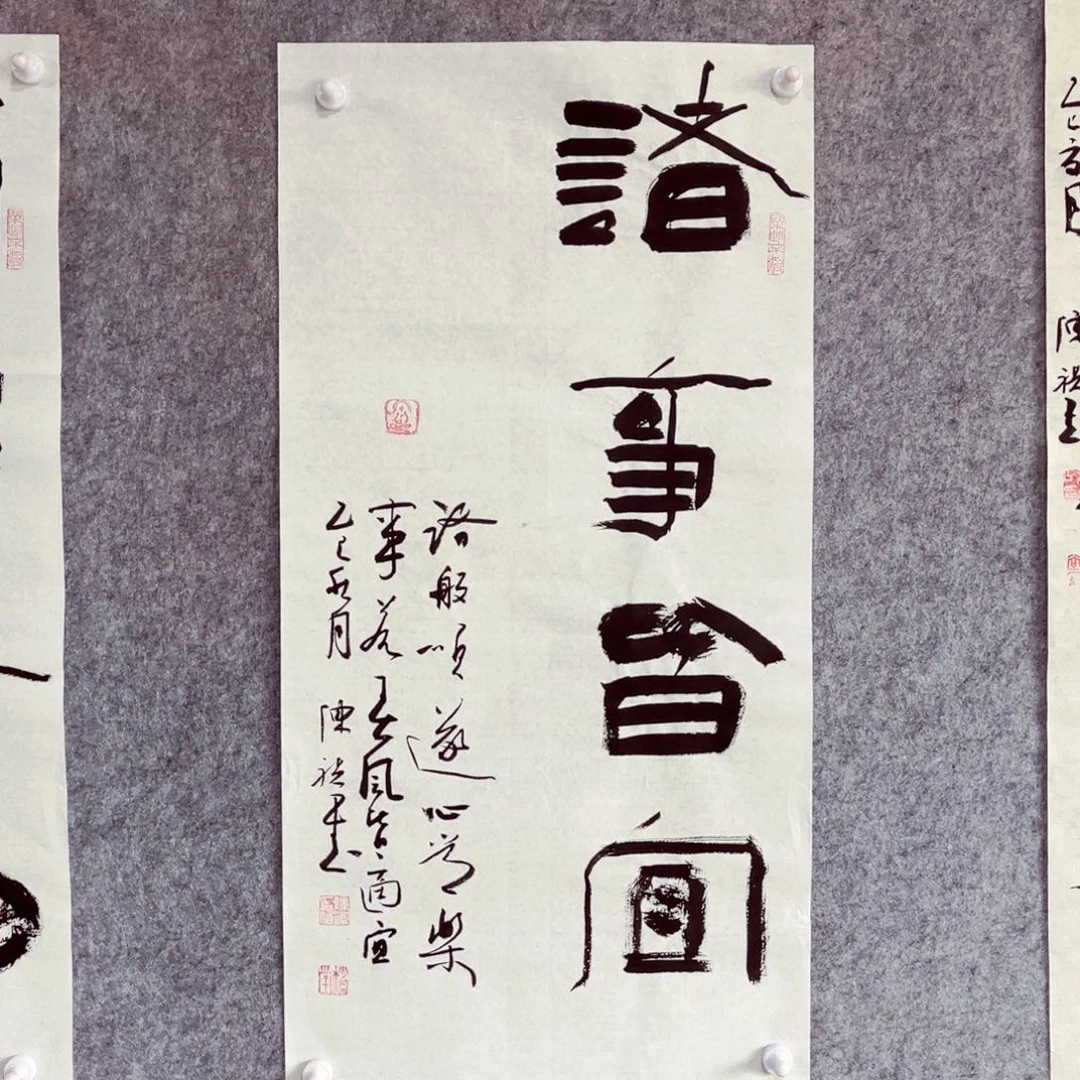 諸事皆宜
諸般順遂心常樂
事若春風皆適宜
乙巳 月 陳